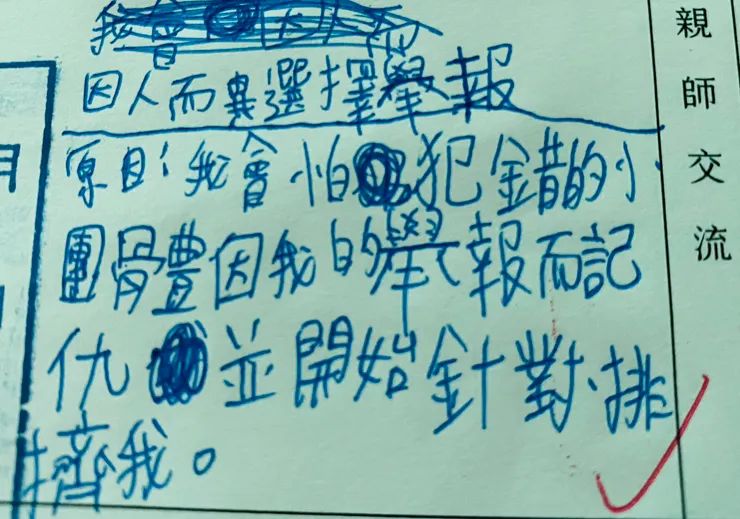 我會因人而
因人而異選擇舉報
原因:我會怕犯錯的小
團體因我的舉報而記
仇並開始針對、排
擠我。
親師交流
月